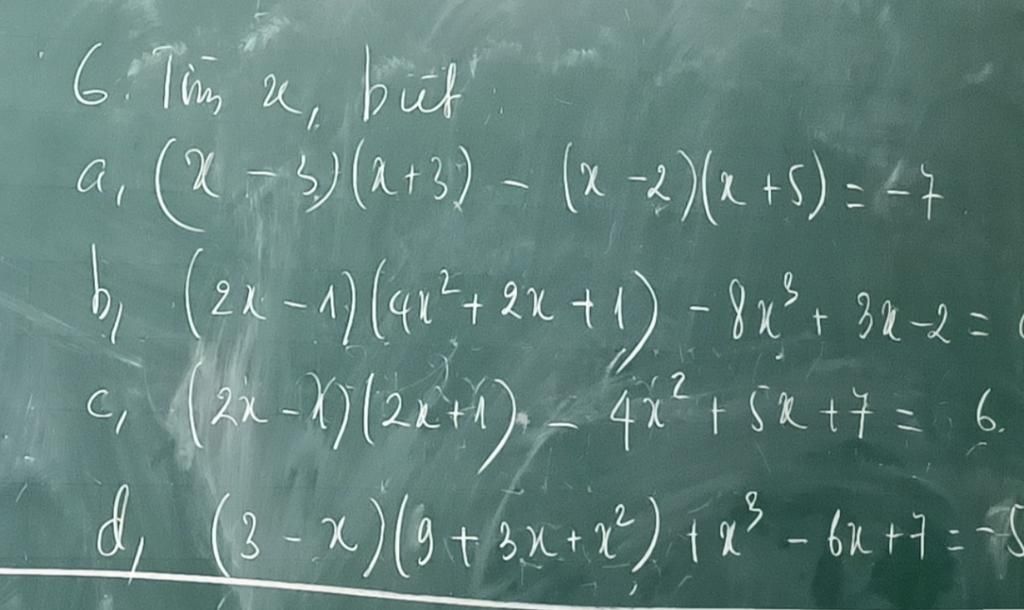 6. Tìm x, biết:
a, (x - 3)(x + 3) - (x - 2)(x + 5) = -7
b, (2x - 1)(4x² + 2x + 1) - 8x³ + 3x - 2 =
c, (2x - 1)(2x + 1) - 4x² + 5x + 7 = 6.
d, (3 - x)(9 + 3x + x²) + x³ - 6x + 7 = -5